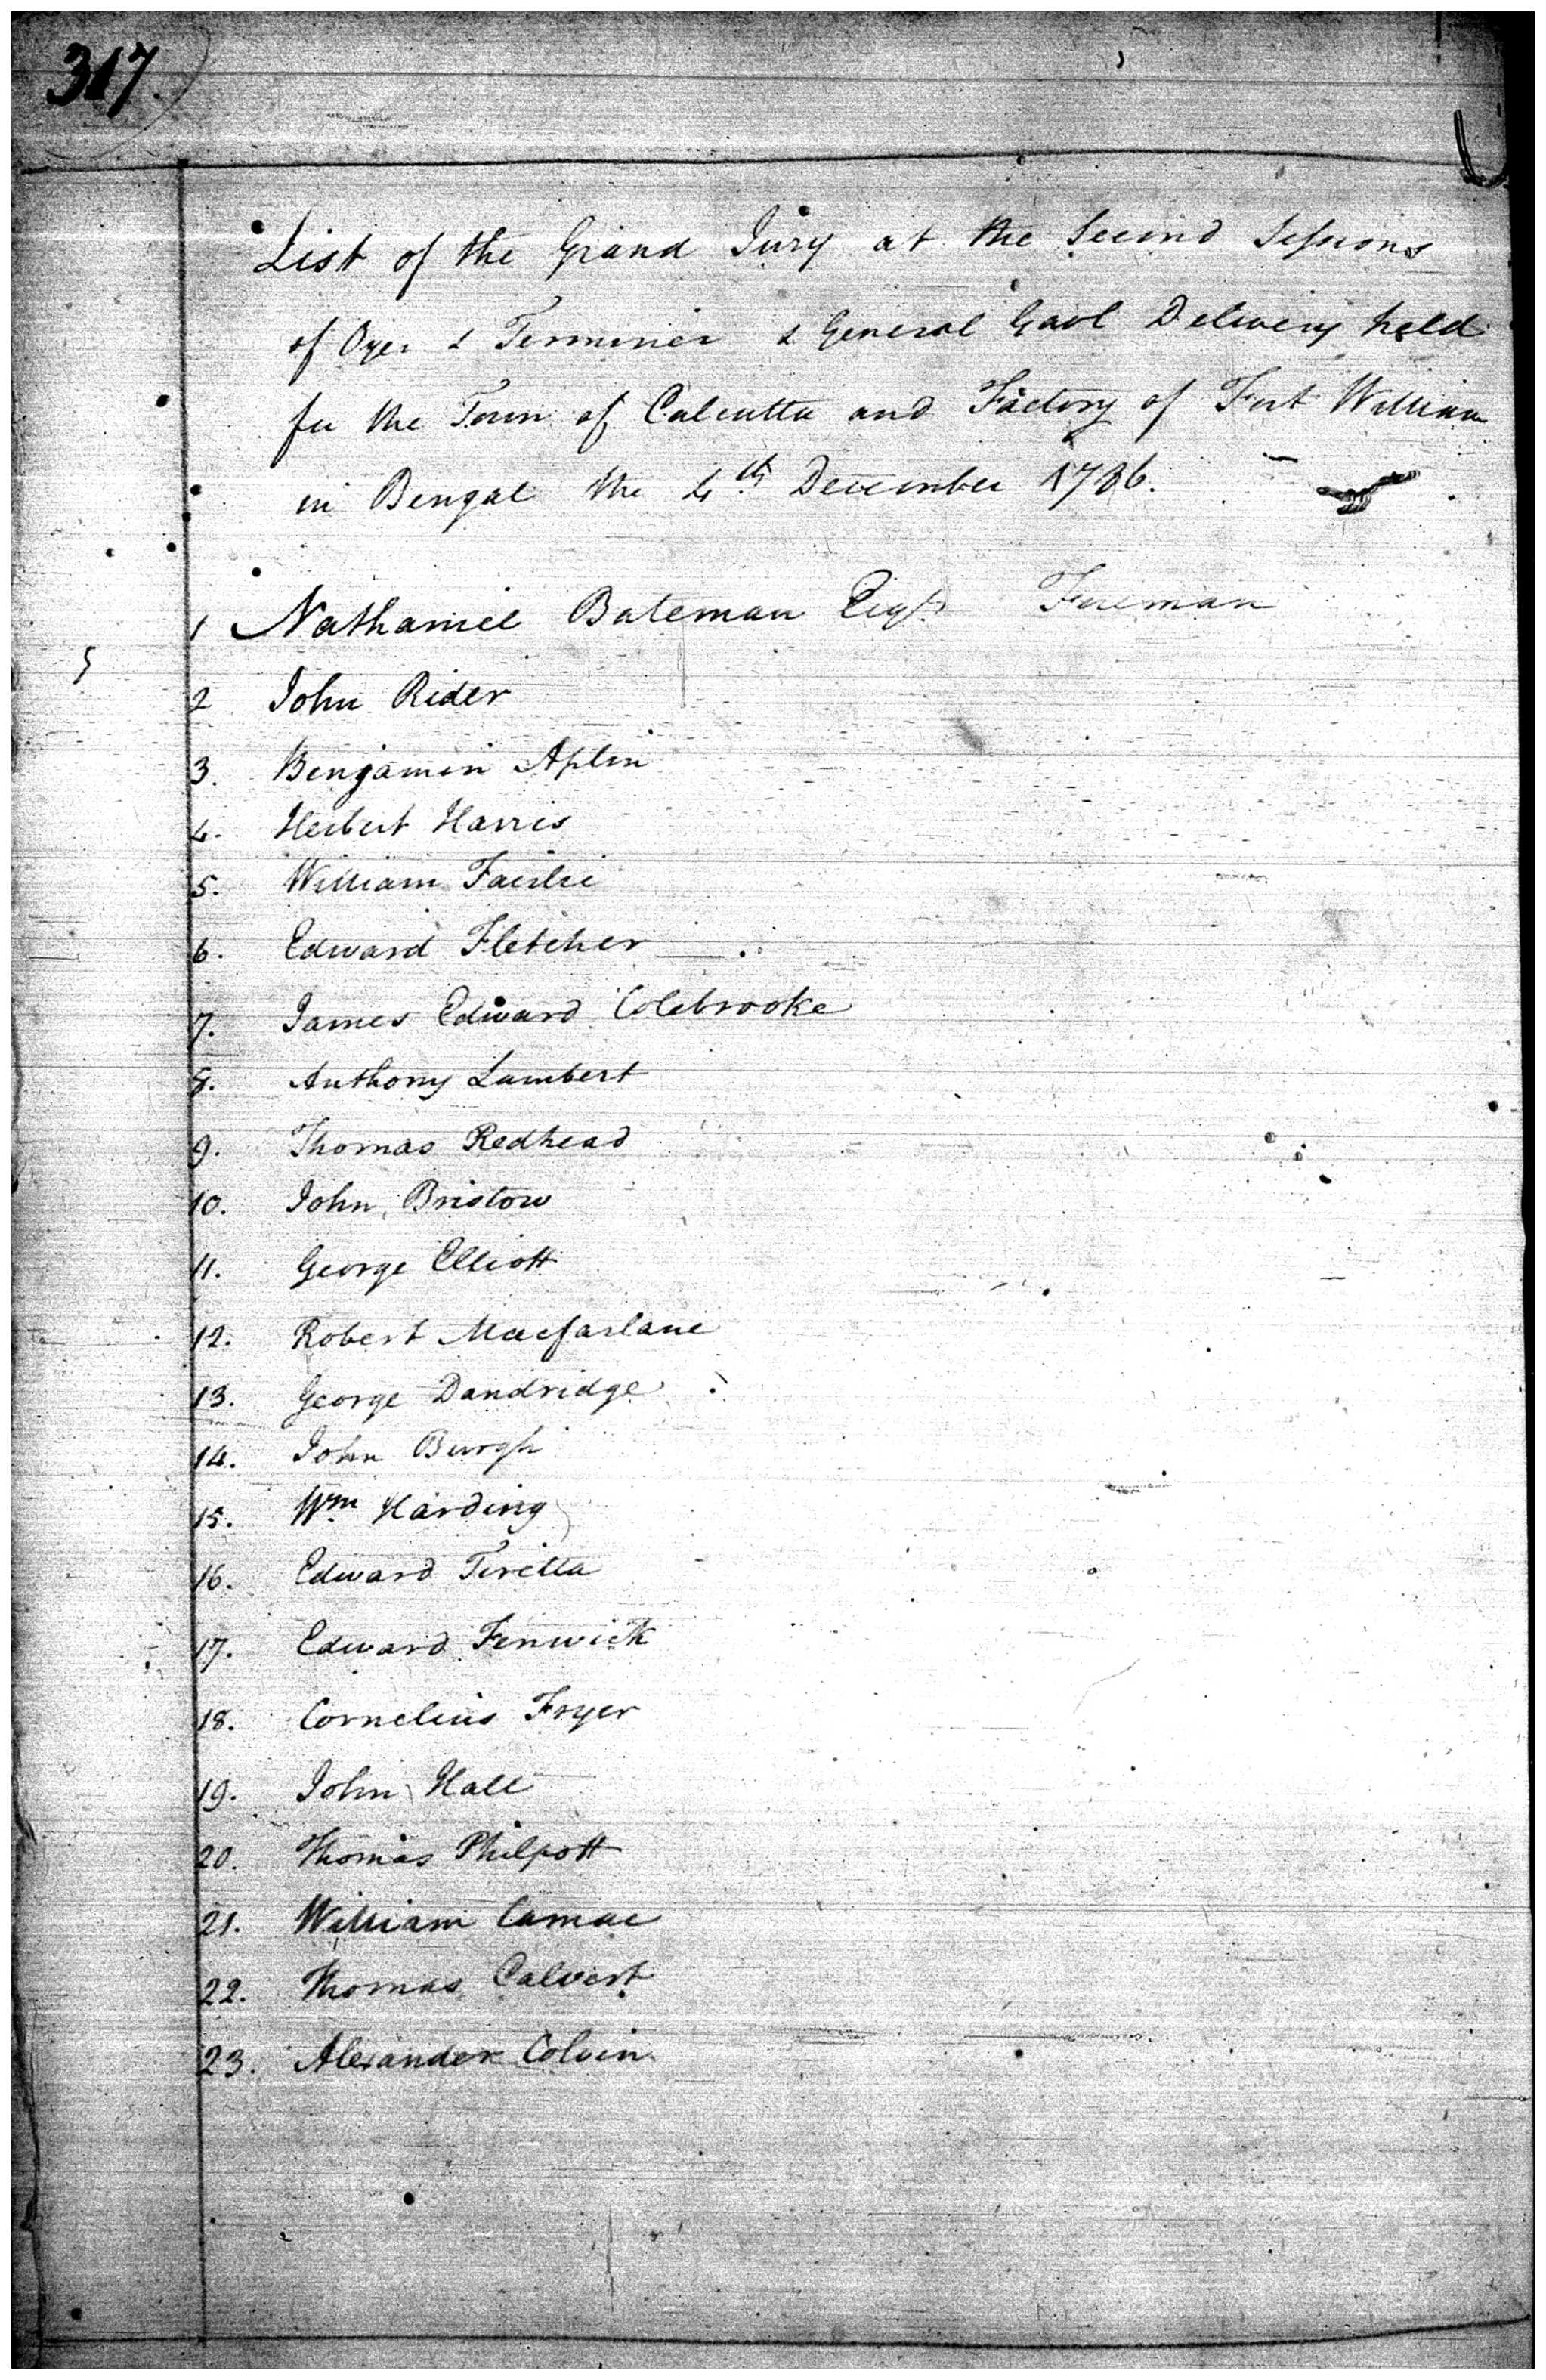 317.
List of the Grand Jury at the Second Sessions
of Oyer & Terminer & General Gaol Delivery held
for the Town of Calcutta and Factory of Fort William
in Bengal the 4th December 1786.
1 Nathaniel Bateman Esqr. Foreman
2 John Rider
3. Benjamin Aplin
4. Herbert Harris
5. William Fairlie
6. Edward Fletcher
7. James Edward Colebrooke
8. Anthony Lambert
9. Thomas Redhead
10. John Bristow
11. George Elliott
12. Robert Macfarlane
13. George Dandridge
14. John Burgh
15. Wm Harding
16. Edward Tiretta
17. Edward Fenwick
18. Cornelius Fryer
19. John Hall
20. Thomas Philpott
21. William Camac
22. Thomas Calvert
23. Alexander Colvin